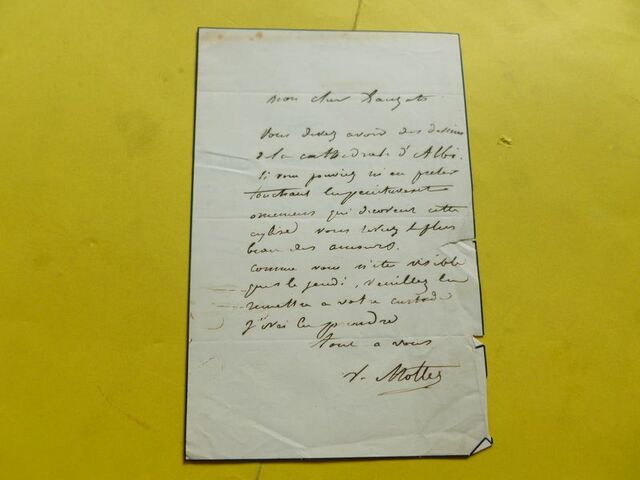 Mon cher Dauzats
Vous devez avoir des dessins
de la cathédrale d'Albi.
Si vous pouviez m'en prêter
touchant les peintures et
ornemens qui décorent cette
église vous seriez le plus
beau des amours.
Comme vous n'êtes visible
que le jeudi, veuillez les
remettre a votre custode
J'irai les prendre
tout a vous
V. Mottez